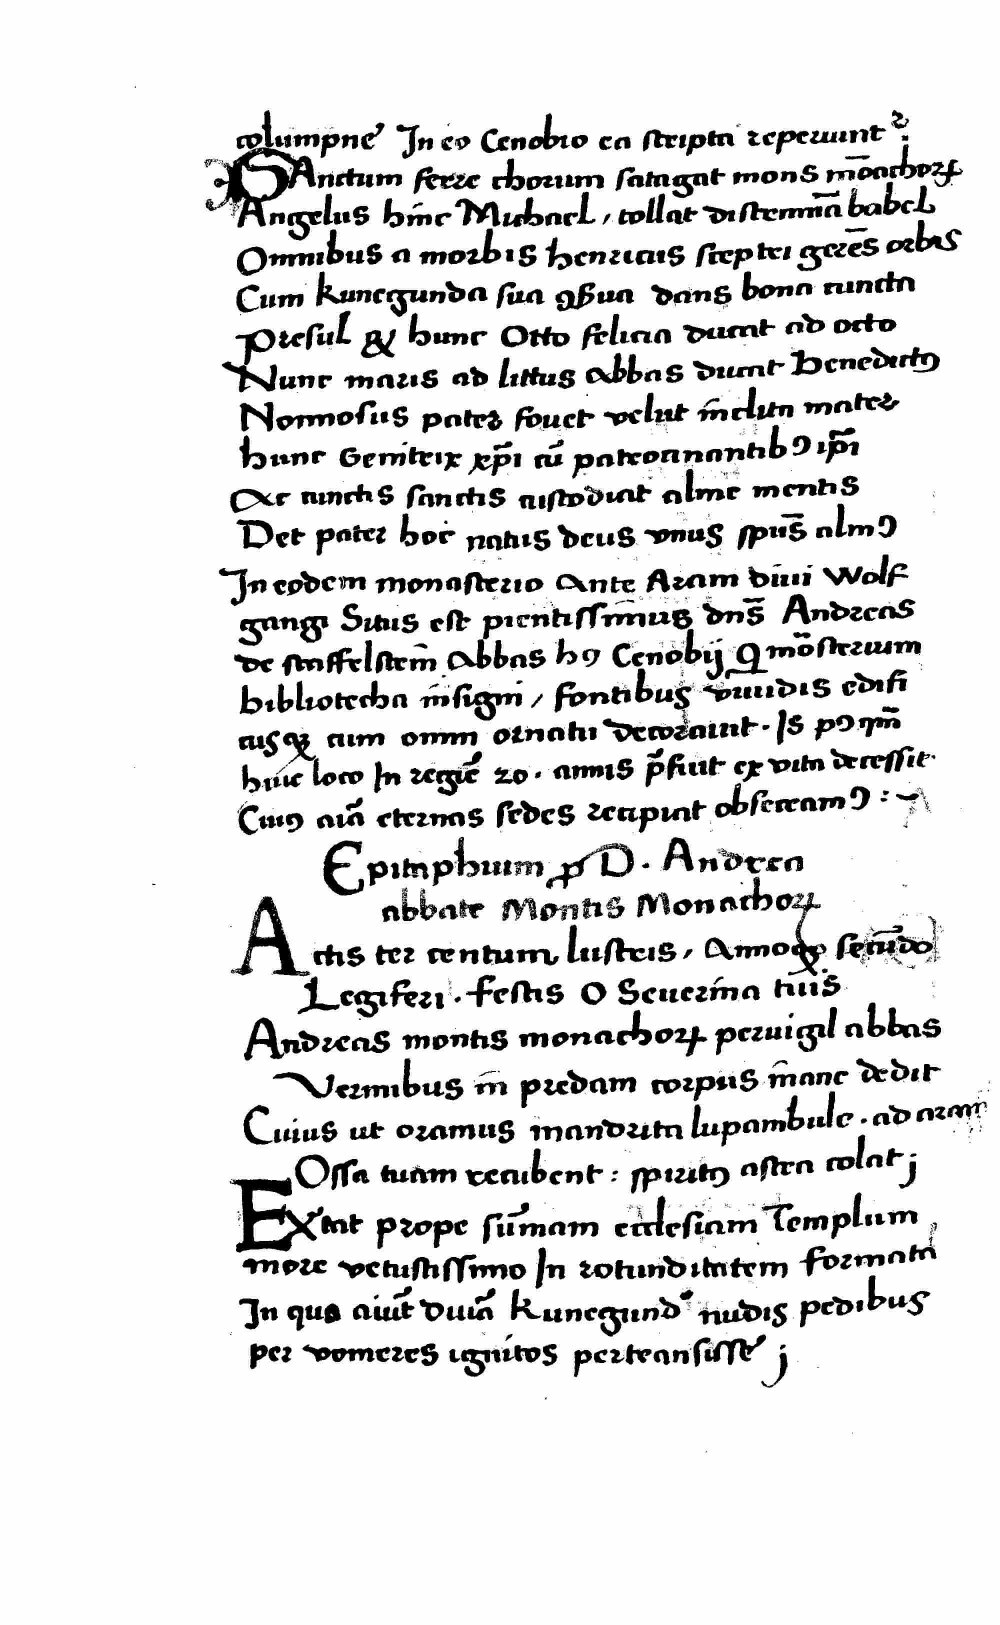 columpne᷒ In eo Cenobio ea scripta reperiunt᷑ :
SAnctum ferre chorum satagat mons mōachoꝝ
Angelus hinc Michael, tollat distēmīa babel
Omnibus a morbis henricus sceptri gerēs orbis
Cum kunegunda sua ꝯsua dans bona cuncta
Presul & hunc Otto felicia ducat ad octo
Nunc maris ad littus abbas ducat Benedictꝰ
Nonnosus pater fouet velut īnclita mater
hunc Genitrix xp̄i cū patrocinantibꝰ ip̄i
Ac cunctis sanctis custodiat alme mentis
Det pater hoc natus deus vnus sp̄us almꝰ
In eodem monasterio Ante Aram diui Wolf
gangi Situs est pientissīmus dn̄s Andreas
de staffelstein Abbas hꝰ Cenobij Qͥ mōsterium
bibliotecha īnsigni, fontibus viuidis edifi
cijsqꝫ cum omni ornatu decorauit. Is pꝰqm̄
huic loco In regīe 20. annis p̄fuit ex vita decessit.
Cuiꝰ aīa eternas sedes recipiat obsecramꝰ :~
Epitaphium ꝓ D. Andrea
abbate Montis Monachoꝝ
Actis ter centum lustris, Annoqꝫ secūdo
Legiferi. festis O Seuerīna tuis
Andreas montis monachoꝝ peruigil abbas
Vermibus ī predam corpus īnane dedit
Cuius ut oramus mandrita lupambule. ad aram
Ossa tuam recubent : spiritꝰ astra colat j
EXtat prope sūmam ecclesiam Templum
more vetustissimo In rotunditatem formata
In qua aiūt diuā kunegund᷒ nudis pedibus
per vomeres ignitos pertransisse᷒ j